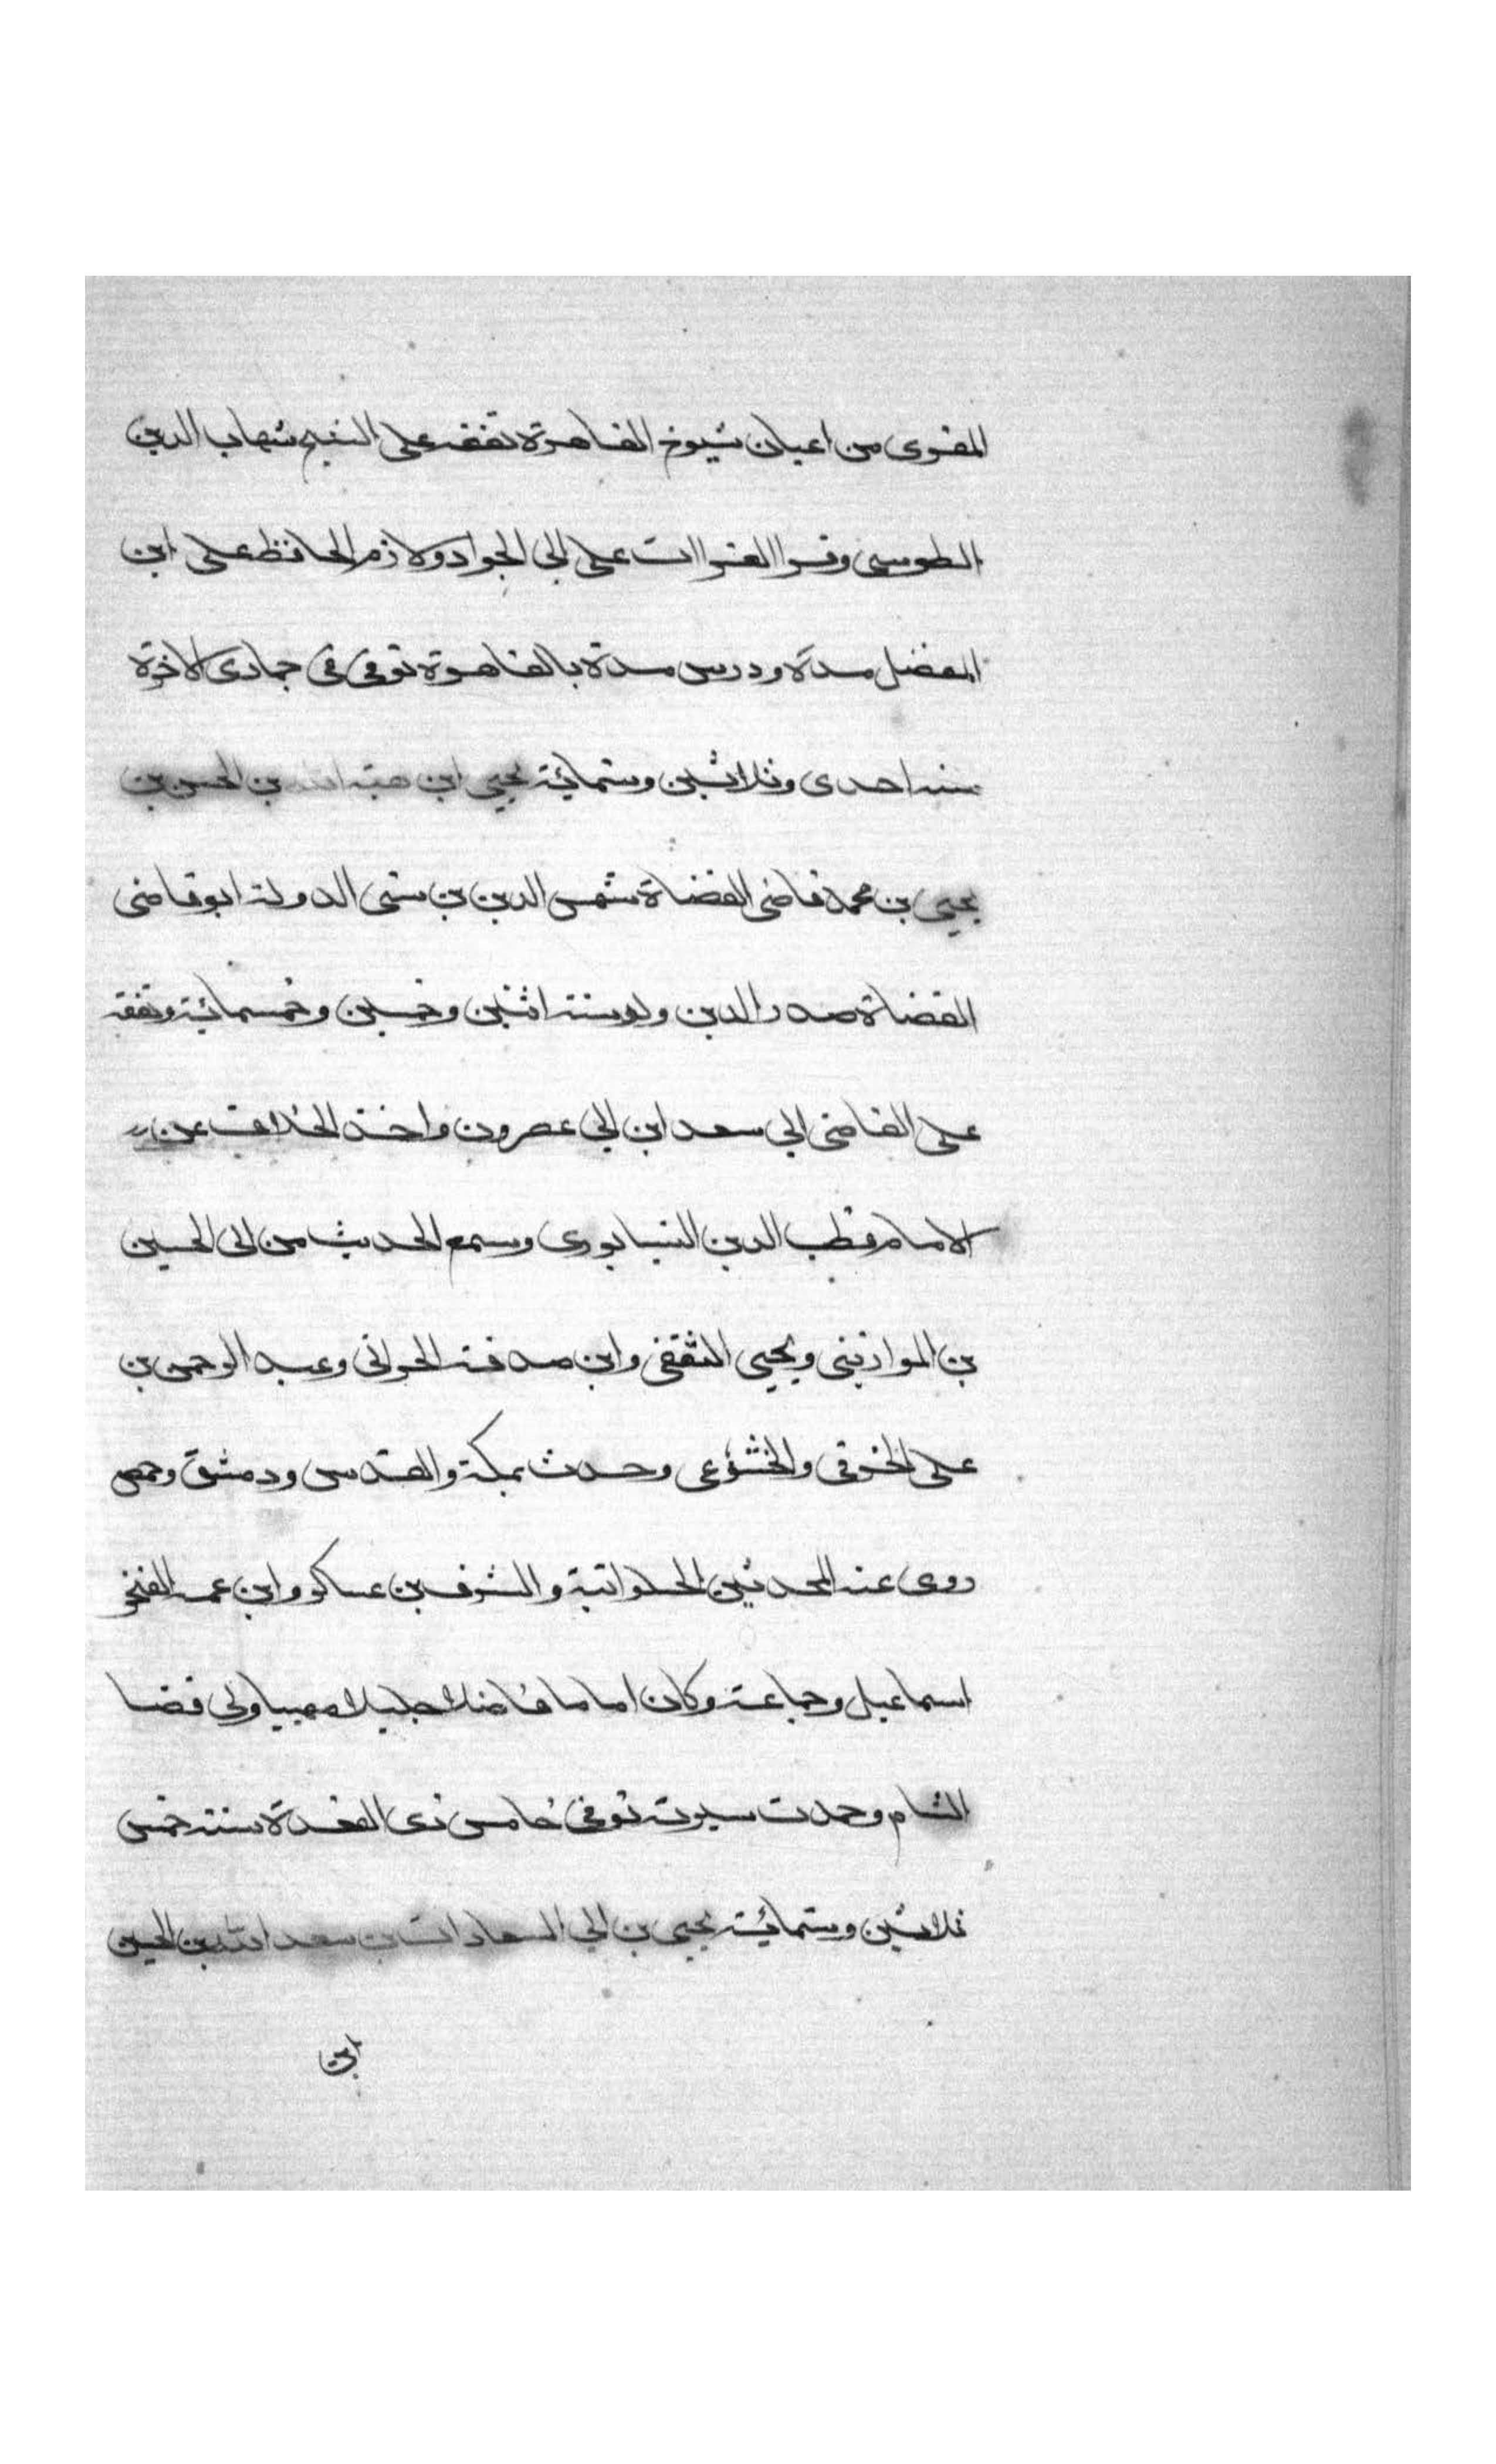 المقرى من اعيان شيوخ القاهرة تفقه على الشيخ شهاب الدين
الطوسى وقرا القراات على ابى الجواد ولازم الحافظ على ابن
المفضل مدة ودرس مدة بالقاهرة توفى فى جمادى الاخرة
سنه احدى وثلاثين وستمائة يحيى ابن هبة الله بن الحسن بن
يحيى بن محمد قاضى القضاة شمس الدين بن سنى الدولة ابو قاضى
القضاة صدر الدين ولد سنة اثنين وخمسين وخمسمائة وتفقه
على القاضى ابى سعد ابن ابى عصرون واخذ الخلاف عن
الامام قطب الدين النيسابورى وسمع الحديث من ابى الحسين
بن الموازينى ويحيى الثقفى وابن صدقة الحرانى وعبد الرحمن بن
على الخرقى والخشوعى وحدث بمكة والقدس ودمشق وحمص
روى عنه المحدثين الحلوانية والشرف بن عساكر وابن عمه الفخر
اسماعيل وجماعة وكان اماما فاضلا جليلا مهيبا ولى قضا
الشام وحمدت سيرته توفى خامس ذى القعدة سنة خمس
ثلاثين وستمائة يحيى بن ابى السعادات بن سعد الله بن الحسين
ابن